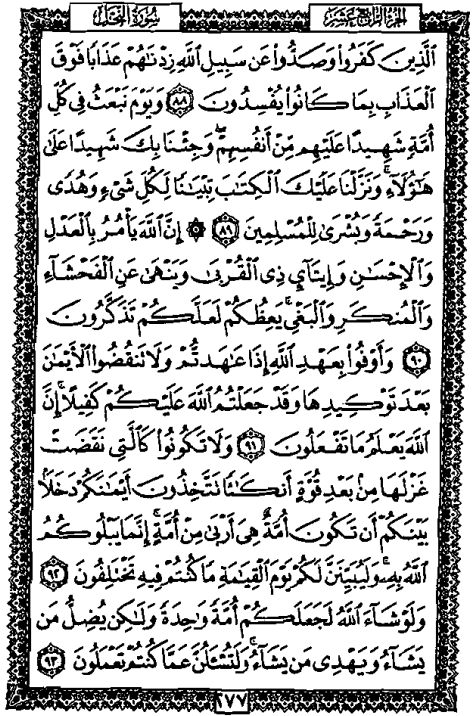 سُورَةُ النَّحْلِ
الجُزْءُ الرَّابِعَ عَشَرَ
ٱلَّذِينَ كَفَرُوا۟ وَصَدُّوا۟ عَن سَبِيلِ ٱللَّهِ زِدْنَٰهُمْ عَذَابًا فَوْقَ
ٱلْعَذَابِ بِمَا كَانُوا۟ يُفْسِدُونَ ٨٨ وَيَوْمَ نَبْعَثُ فِى كُلِّ
أُمَّةٍ شَهِيدًا عَلَيْهِم مِّنْ أَنفُسِهِمْ ۖ وَجِئْنَا بِكَ شَهِيدًا عَلَىٰ
هَٰٓؤُلَآءِ ۚ وَنَزَّلْنَا عَلَيْكَ ٱلْكِتَٰبَ تِبْيَٰنًا لِّكُلِّ شَىْءٍ وَهُدًى
وَرَحْمَةً وَبُشْرَىٰ لِلْمُسْلِمِينَ ٨٩ ۞ إِنَّ ٱللَّهَ يَأْمُرُ بِٱلْعَدْلِ
وَٱلْإِحْسَٰنِ وَإِيتَآئِ ذِى ٱلْقُرْبَىٰ وَيَنْهَىٰ عَنِ ٱلْفَحْشَآءِ
وَٱلْمُنكَرِ وَٱلْبَغْىِ ۚ يَعِظُكُمْ لَعَلَّكُمْ تَذَكَّرُونَ
٩٠ وَأَوْفُوا۟ بِعَهْدِ ٱللَّهِ إِذَا عَٰهَدتُّمْ وَلَا تَنقُضُوا۟ ٱلْأَيْمَٰنَ
بَعْدَ تَوْكِيدِهَا وَقَدْ جَعَلْتُمُ ٱللَّهَ عَلَيْكُمْ كَفِيلًا ۚ إِنَّ
ٱللَّهَ يَعْلَمُ مَا تَفْعَلُونَ ٩١ وَلَا تَكُونُوا۟ كَٱلَّتِى نَقَضَتْ
غَزْلَهَا مِنۢ بَعْدِ قُوَّةٍ أَنكَٰثًا تَتَّخِذُونَ أَيْمَٰنَكُمْ دَخَلًۢا
بَيْنَكُمْ أَن تَكُونَ أُمَّةٌ هِىَ أَرْبَىٰ مِنْ أُمَّةٍ ۚ إِنَّمَا يَبْلُوكُمُ
ٱللَّهُ بِهِۦ ۚ وَلَيُبَيِّنَنَّ لَكُمْ يَوْمَ ٱلْقِيَٰمَةِ مَا كُنتُمْ فِيهِ تَخْتَلِفُونَ ٩٢
وَلَوْ شَآءَ ٱللَّهُ لَجَعَلَكُمْ أُمَّةً وَٰحِدَةً وَلَٰكِن يُضِلُّ مَن
يَشَآءُ وَيَهْدِى مَن يَشَآءُ ۚ وَلَتُسْـَٔلُنَّ عَمَّا كُنتُمْ تَعْمَلُونَ ٩٣
٢٧٧